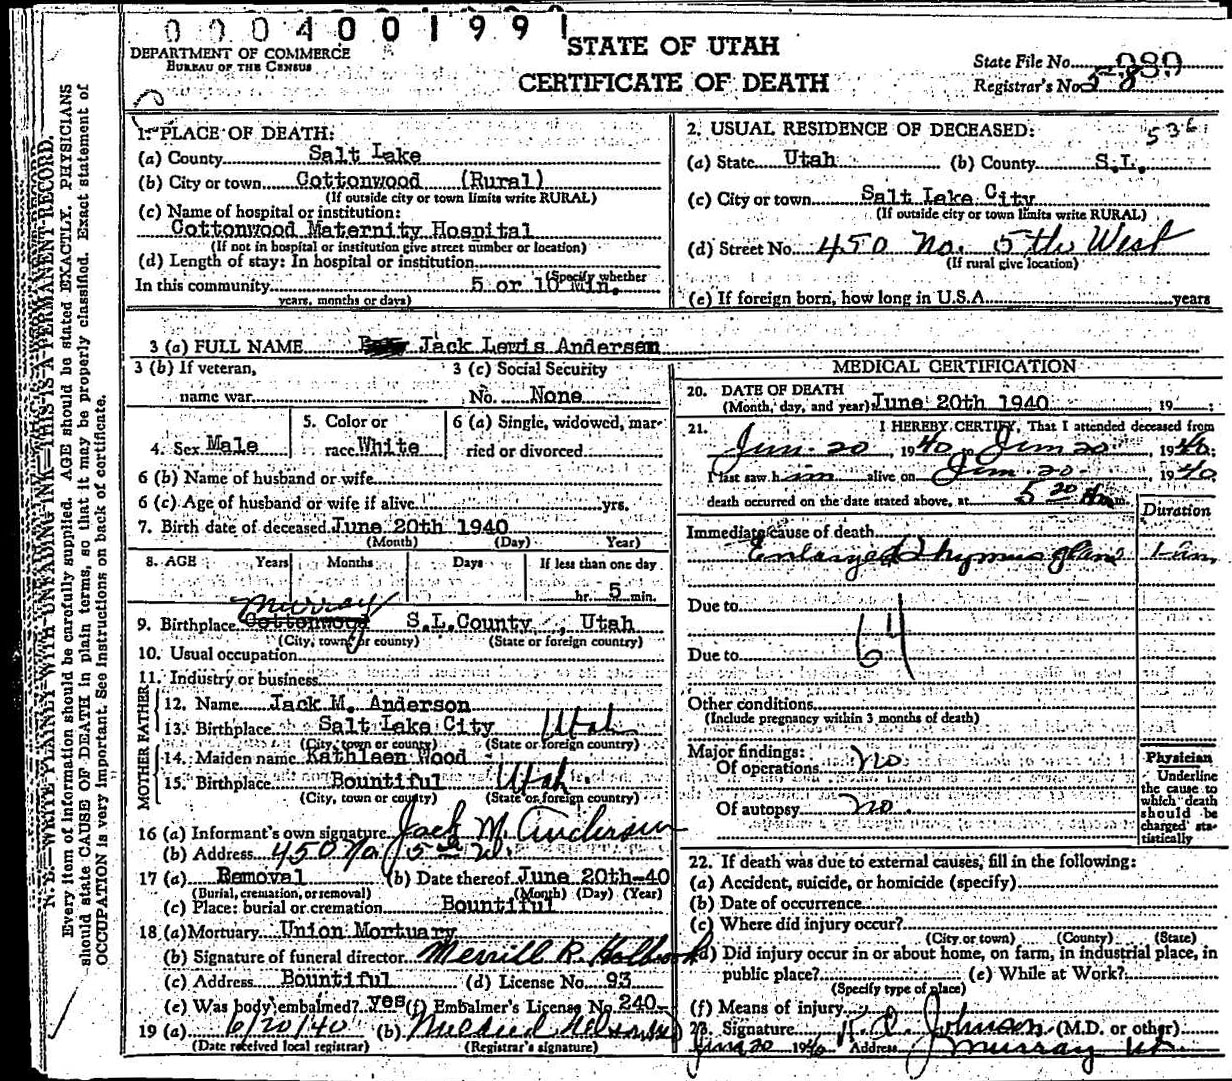 0004001991
DEPARTMENT OF COMMERCE
BUREAU OF THE CENSUS
STATE OF UTAH
CERTIFICATE OF DEATH
State File No. 989
Registrar's No. 58
N. B.—WRITE PLAINLY WITH UNFADING INK—THIS IS A PERMANENT RECORD.
Every item of information should be carefully supplied. AGE should be stated EXACTLY. PHYSICIANS
should state CAUSE OF DEATH in plain terms, so that it may be properly classified. Exact statement of
OCCUPATION is very important. See instructions on back of certificate.
1. PLACE OF DEATH:
(a) County Salt Lake
(b) City or town Cottonwood (Rural)
(If outside city or town limits write RURAL)
(c) Name of hospital or institution:
Cottonwood Maternity Hospital
(If not in hospital or institution give street number or location)
(d) Length of stay: In hospital or institution
(Specify whether
In this community 5 or 10 Min.
years, months or days)
2. USUAL RESIDENCE OF DECEASED: 536
(a) State Utah (b) County S.L.
(c) City or town Salt Lake City
(If outside city or town limits write RURAL)
(d) Street No. 450 No. 5th West
(If rural give location)
(e) If foreign born, how long in U.S.A. years
3 (a) FULL NAME Jack Lewis Anderson
3 (b) If veteran,
name war
3 (c) Social Security
No. None
4. Sex Male
5. Color or
race White
6 (a) Single, widowed, mar-
ried or divorced
6 (b) Name of husband or wife
6 (c) Age of husband or wife if alive yrs.
7. Birth date of deceased June 20th 1940
(Month) (Day) Year)
8. AGE Years Months Days If less than one day
hr. 5 min.
Murray
9. Birthplace Cottonwood S.L.County, Utah
(City, town, or county) (State or foreign country)
10. Usual occupation
11. Industry or business
FATHER
12. Name Jack M. Anderson
13. Birthplace Salt Lake City Utah
(City, town or county) (State or foreign country)
MOTHER
14. Maiden name Kathleen Wood
15. Birthplace Bountiful Utah
(City, town or county) (State or foreign country)
16 (a) Informant's own signature Jack M. Anderson
(b) Address 450 No. 5th W.
17 (a) Removal (b) Date thereof June 20th-40
(Burial, cremation, or removal) (Month) (Day) (Year)
(c) Place: burial or cremation Bountiful
18 (a) Mortuary Union Mortuary
(b) Signature of funeral director Merrill R. Holbrook
(c) Address Bountiful (d) License No. 93
(e) Was body embalmed? yes (f) Embalmer's License No. 240
19 (a) 6/20/40 (b)
(Date received local registrar) (Registrar's signature)
MEDICAL CERTIFICATION
20. DATE OF DEATH
(Month, day, and year) June 20th 1940, 19
21. I HEREBY CERTIFY, That I attended deceased from
Jun. 20, 1940 to Jun 20, 1940;
I last saw him alive on Jun. 20, 1940
death occurred on the date stated above, at 5 20 A m.
Duration
Immediate cause of death
Enlarged Thymus gland
Due to
64
Due to
Other conditions
(Include pregnancy within 3 months of death)
Major findings:
Of operations no
Of autopsy no.
Physician
Underline
the cause to
which death
should be
charged sta-
tistically
22. If death was due to external causes, fill in the following:
(a) Accident, suicide, or homicide (specify)
(b) Date of occurrence
(c) Where did injury occur?
(City or town) (County) (State)
(d) Did injury occur in or about home, on farm, in industrial place, in
public place? (e) While at Work?
(Specify type of place)
(f) Means of injury
23. Signature Johnson (M.D. or other)
June 20 1940 Address Murray Ut.